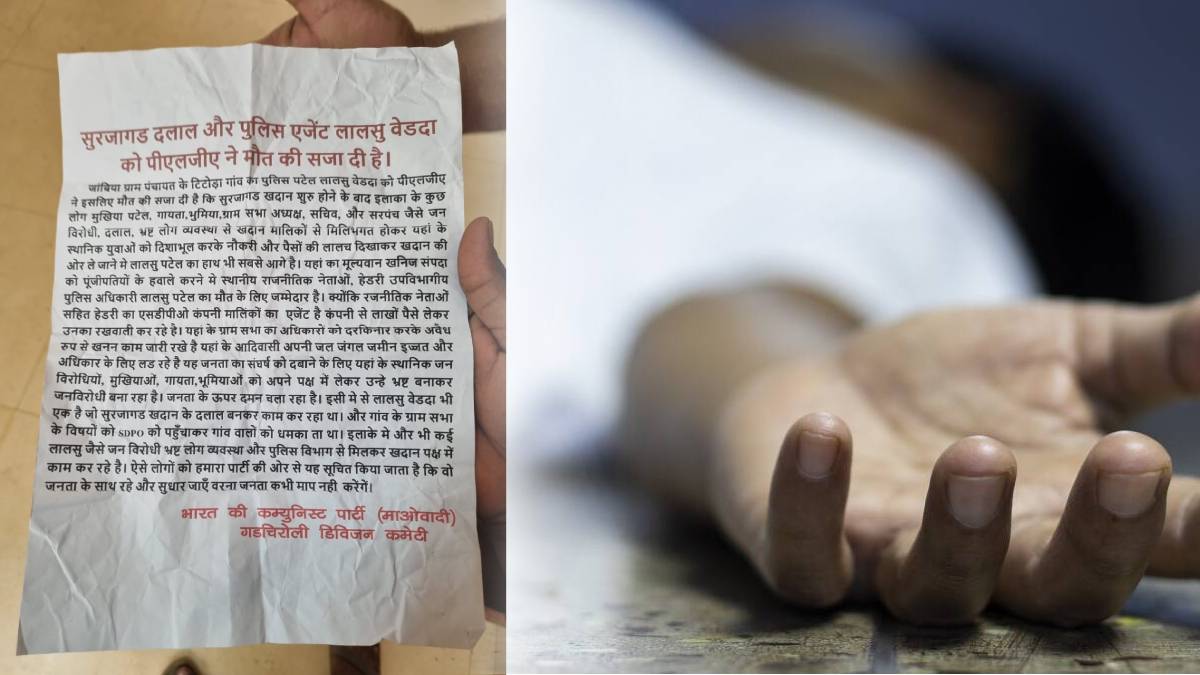 सुरजागड दलाल और पुलिस एजेंट लालसु वेडदा
को पीएलजीए ने मौत की सजा दी है।
जांबिया ग्राम पंचायत के टिटोड़ा गांव का पुलिस पटेल लालसु वेडदा को पीएलजीए
ने इसलिए मौत की सजा दी है कि सुरजागड खदान शुरु होने के बाद इलाका के कुछ
लोग मुखिया पटेल, गायता,भुमिया,ग्राम सभा अध्यक्ष, सचिव, और सरपंच जैसे जन
विरोधी, दलाल, भ्रष्ट लोग व्यवस्था से खदान मालिकों से मिलिभगत होकर यहां के
स्थानिक युवाओं को दिशाभूल करके नौकरी और पैसों की लालच दिखाकर खदान की
ओर ले जाने मे लालसु पटेल का हाथ भी सबसे आगे है। यहां का मूल्यवान खनिज संपदा
को पूंजीपतियों के हवाले करने मे स्थानीय राजनीतिक नेताओं, हेडरी उपविभागीय
पुलिस अधिकारी लालसु पटेल का मौत के लिए जम्मेदार है। क्योंकि रजनीतिक नेताओं
सहित हेडरी का एसडीपीओ कंपनी मालिकों का एजेंट है कंपनी से लाखों पैसे लेकर
उनका रखवाली कर रहे है। यहां के ग्राम सभा का अधिकारों को दरकिनार करके अवैध
रुप से खनन काम जारी रखे है यहां के आदिवासी अपनी जल जंगल जमीन इज्जत और
अधिकार के लिए लड रहे है यह जनता का संघर्ष को दबाने के लिए यहां के स्थानिक जन
विरोधियों, मुखियाओं, गायता,भूमियाओं को अपने पक्ष में लेकर उन्हे भ्रष्ट बनाकर
जनविरोधी बना रहा है। जनता के ऊपर दमन चला रहा है। इसी मे से लालसु वेडदा भी
एक है जो सुरजागड खदान के दलाल बनकर काम कर रहा था। और गांव के ग्राम सभा
के विषयों को SDPO को पहुँचाकर गांव वालों को धमका ता था। इलाके मे और भी कई
लालसु जैसे जन विरोधी भ्रष्ट लोग व्यवस्था और पुलिस विभाग से मिलकर खदान पक्ष में
काम कर रहे है। ऐसे लोगों को हमारा पार्टी की ओर से यह सूचित किया जाता है कि वो
जनता के साथ रहे और सुधार जाएँ वरना जनता कभी माप नही करेगें।
भारत की कम्युनिस्ट पार्टी (माओवादी)
गडचिरोली डिविजन कमेटी